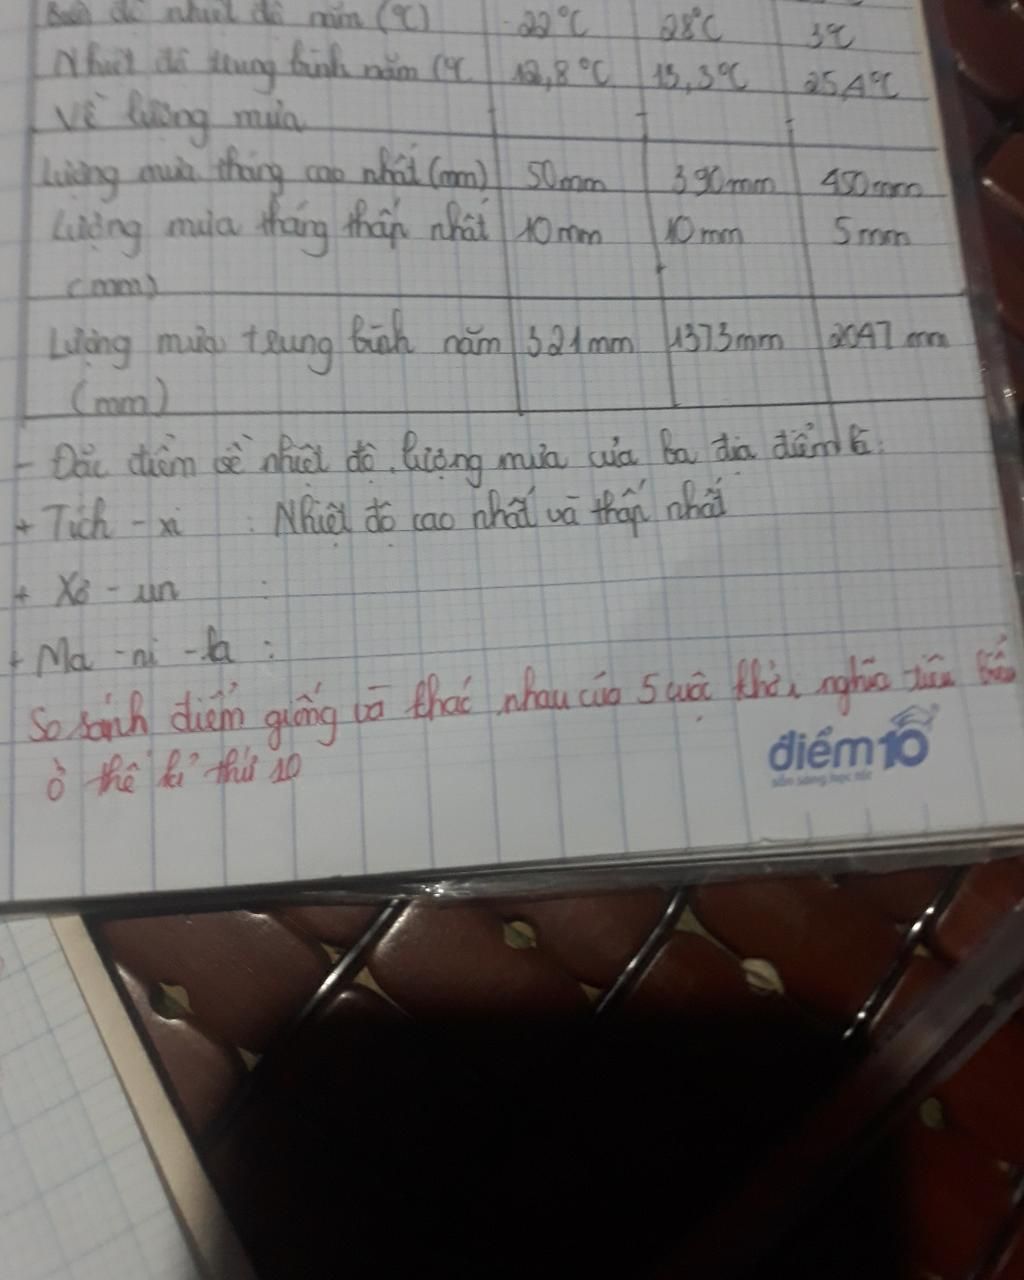 Biên độ nhiệt độ năm (°C) 22°C 28°C 3°C
Nhiệt độ trung bình năm (°C 12,8°C 13,3°C 25,4°C
Về lượng mưa
Lượng mưa tháng cao nhất (mm) 50mm 390mm 450mm
Lượng mưa tháng thấp nhất 10mm 10mm 5mm
(mm)
Lượng mưa trung bình năm 321mm 1373mm 2047 mm
(mm)
- Đặc điểm về nhiệt độ, lượng mưa của ba địa điểm là:
+ Tich - xi : Nhiệt độ cao nhất và thấp nhất
+ Xơ - un :
+ Ma - ni - la :
So sánh điểm giống và khác nhau của 5 cuộc khởi nghĩa tiêu biểu
ở thế kỉ thứ 10
điểm10
sẵn sàng học tốt